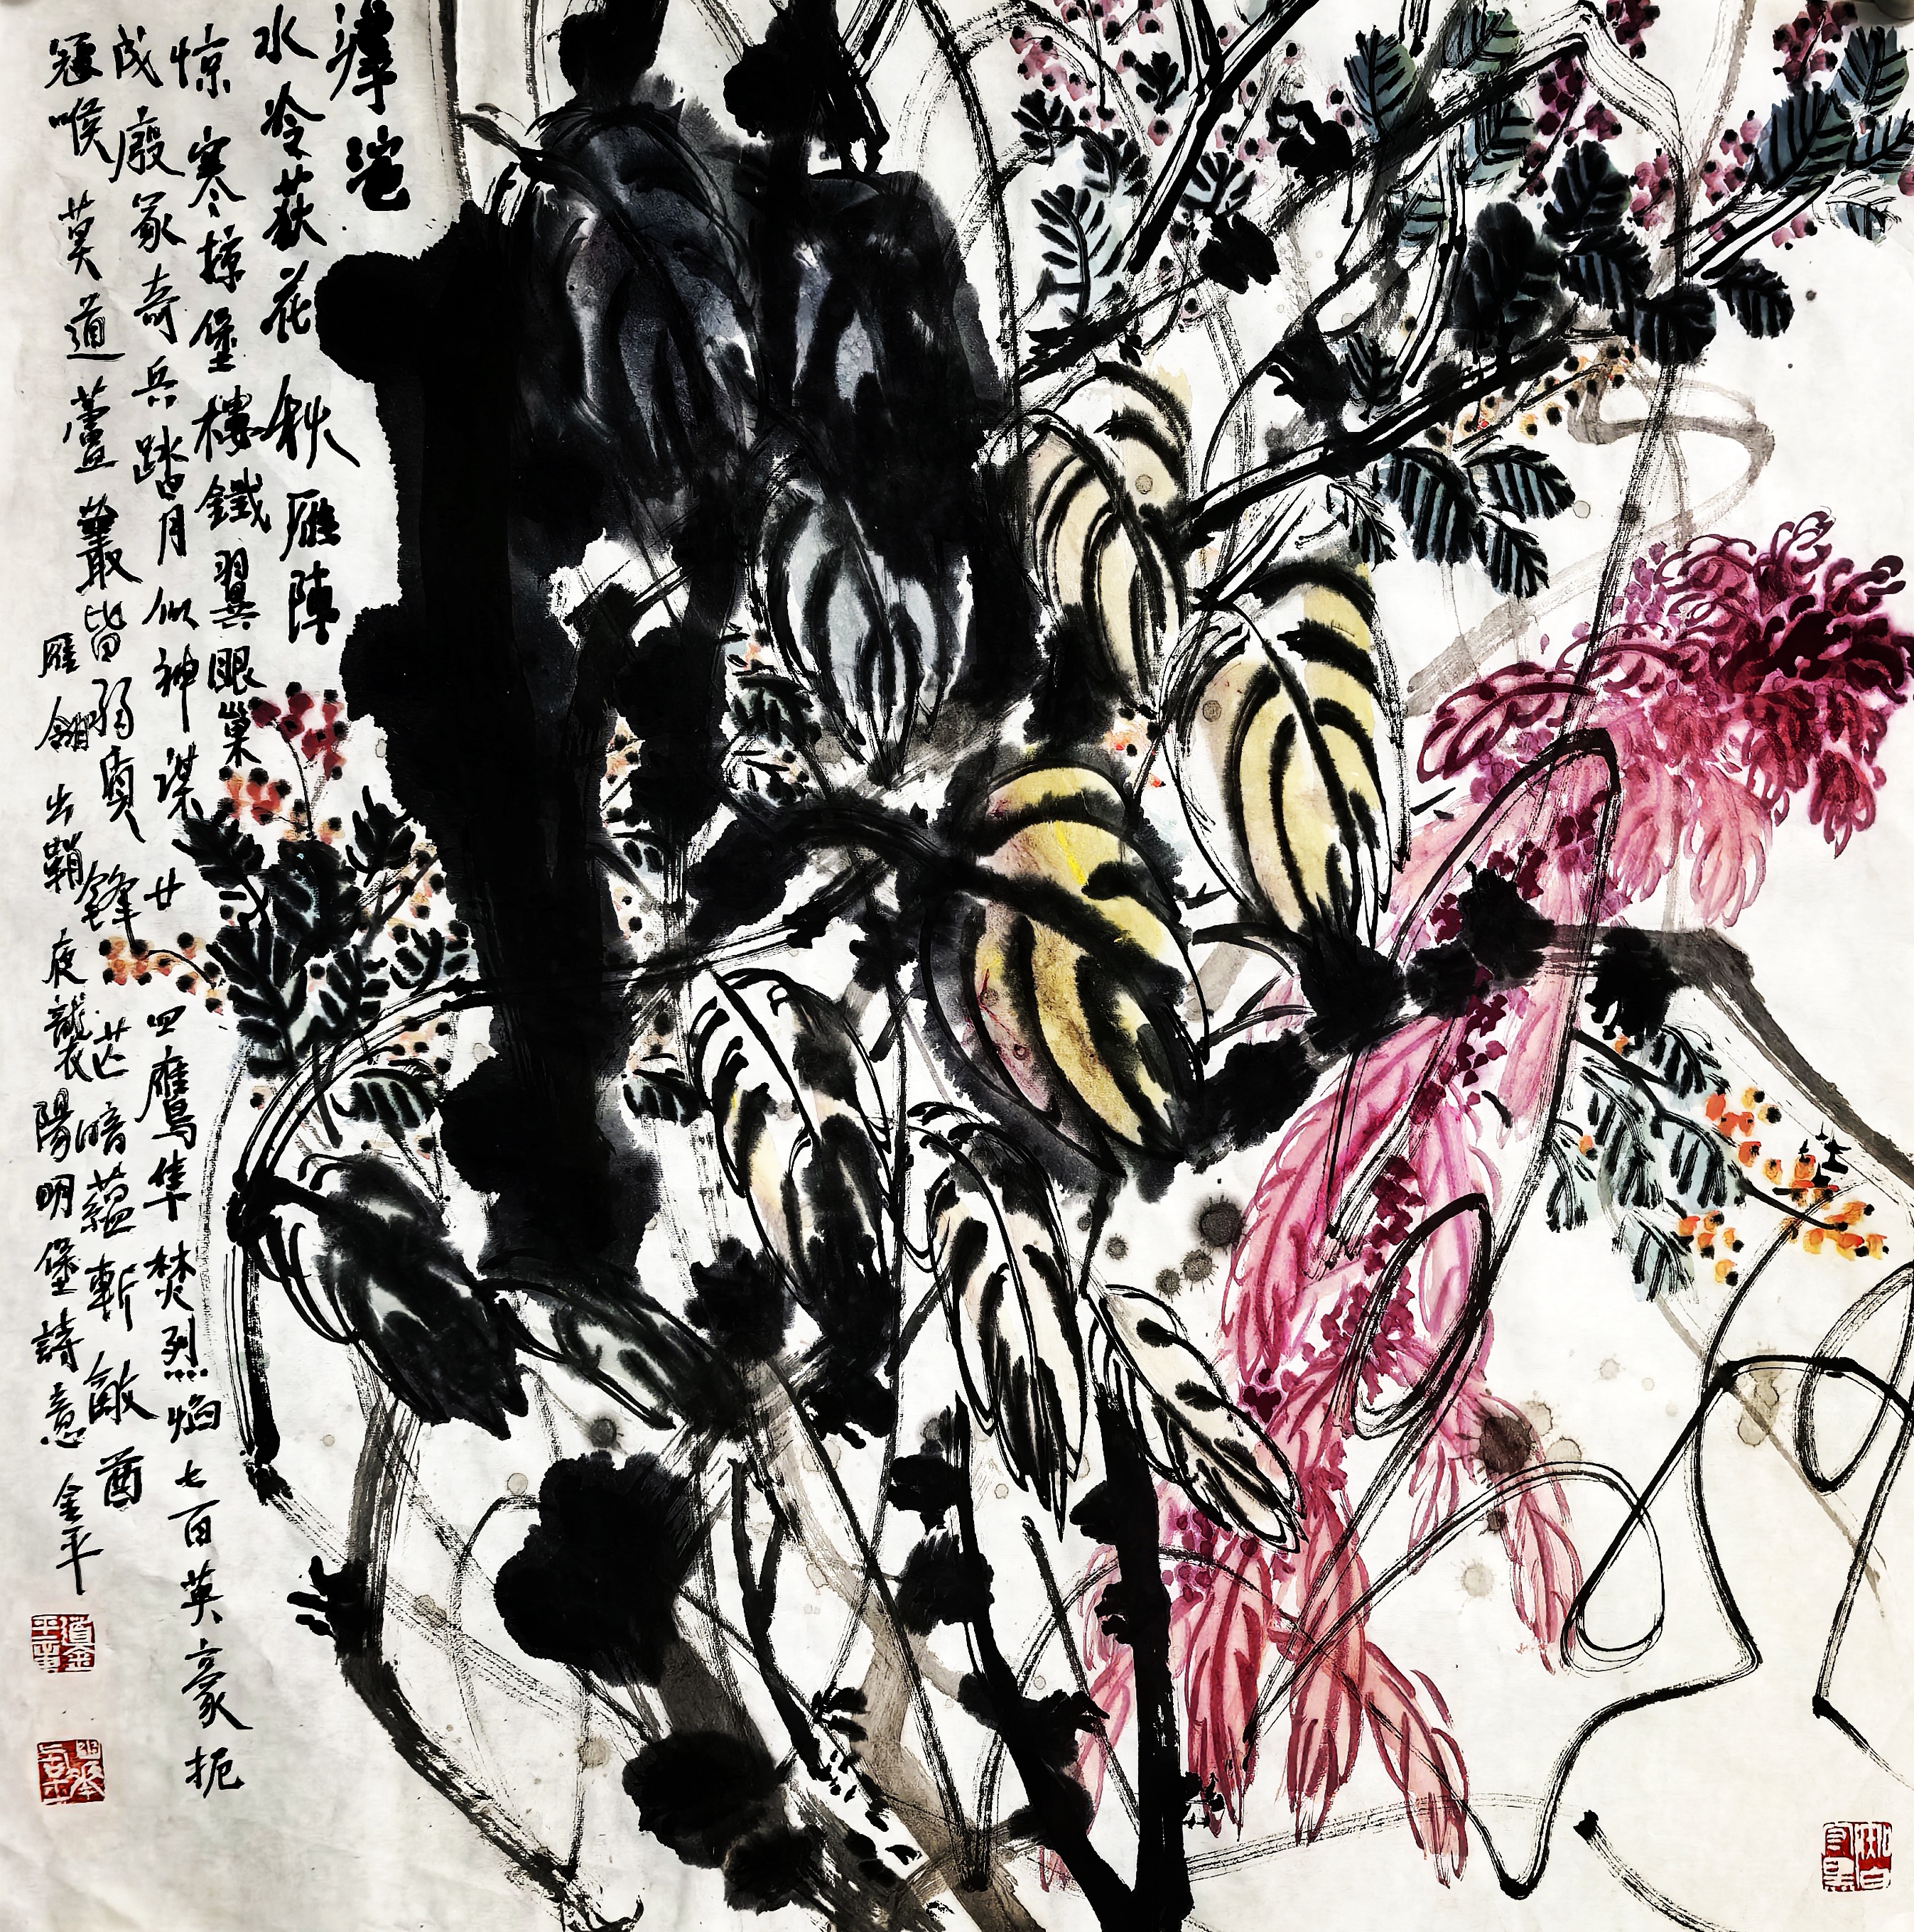 滹沱
水冷荻花秋雁陣
惊寒掠堡樓鐵翼眼巢
成廢冢奇兵踏月似神謀廿四鷹隼焚烈焰七百英豪扼
寇喉莫道蘆叢皆弱質鋒芒暗蘊斬敵酋
雁翎出鞘夜襲陽明堡詩意金平